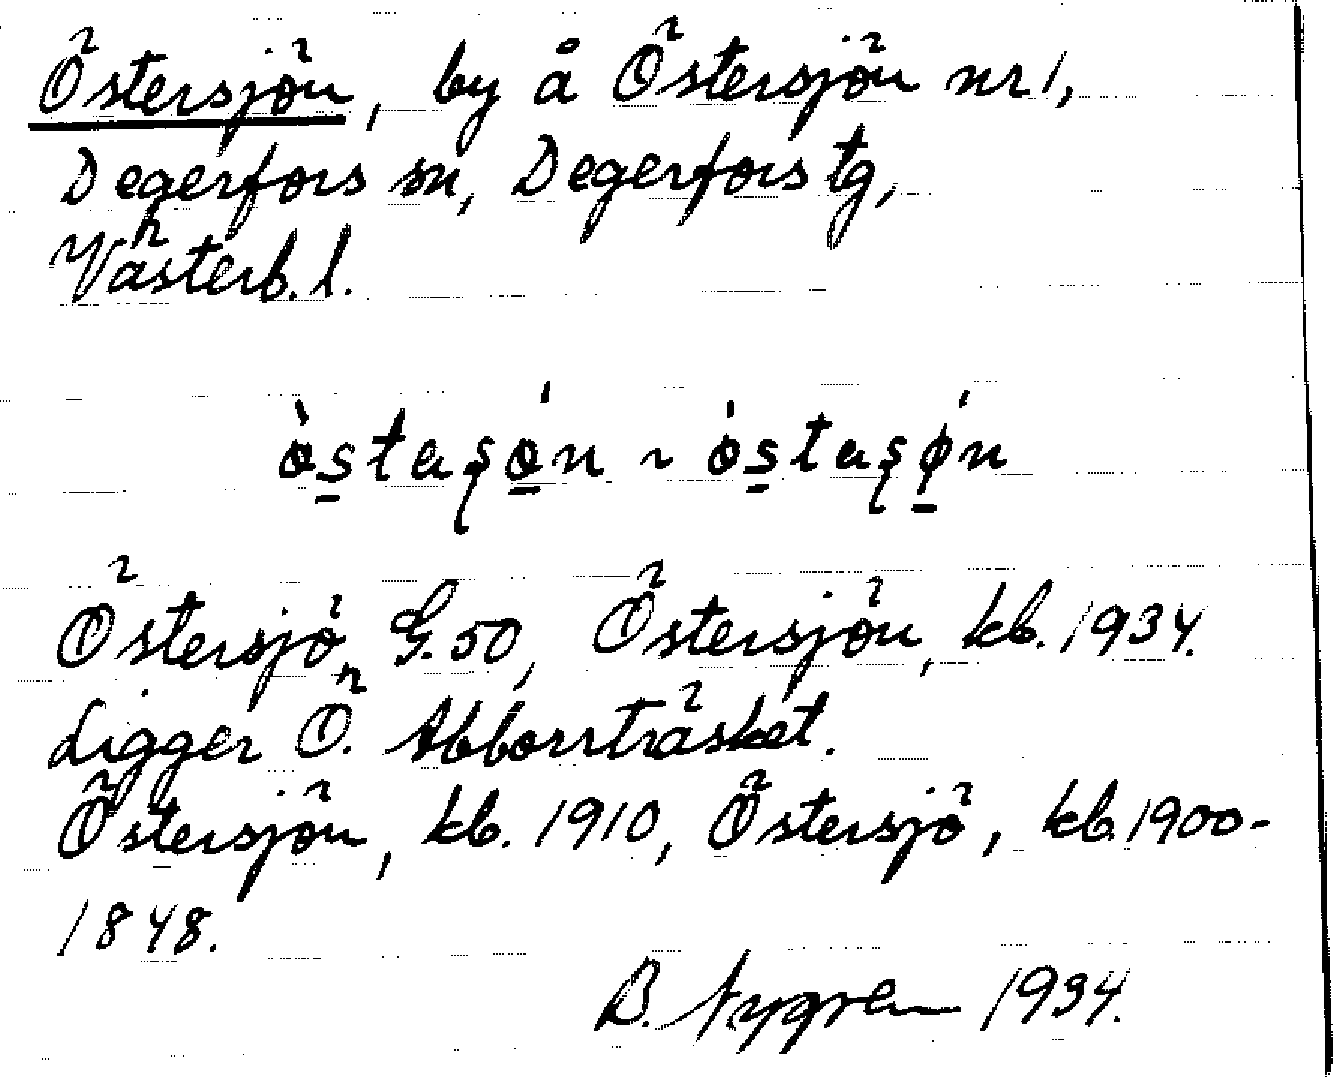 Östersjön, by å Östersjön nr 1,
Degerfors sn, Degerfors tg,
Västerb. l.
ò̀s̲taşǫ́n ~ ò̀s̲taşǿ̲n
Östersjö, G.50, Östersjön, kb. 1934.
Ligger Ö. Abborrträsket.
Östersjön, kb. 1910, Östersjö, kb. 1900-
1848.
B. Nygren 1934.